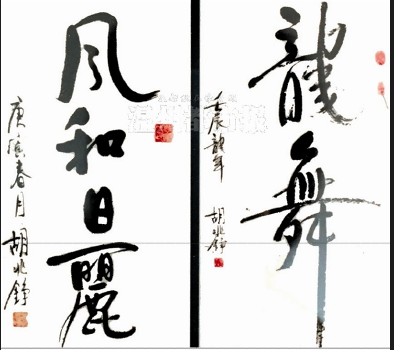 龍舞
壬辰龍年 胡兆錚
风和日麗
庚寅春月 胡兆錚